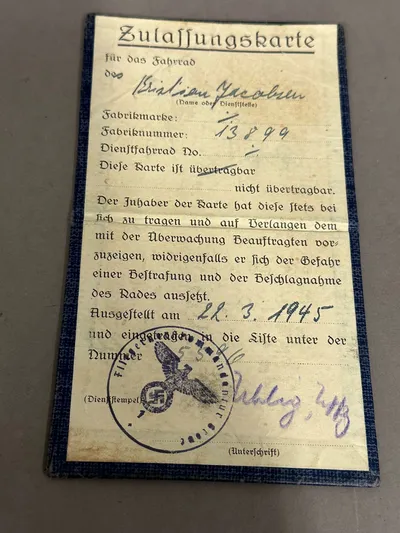 Zulassungskarte
für das Fahrrad
des Kristian Jacobsen
(Name oder Dienststelle)
Fabrikmarke: ·/·
Fabriknummer: 13899
Dienstfahrrad No. ·/·
Diese Karte ist übertragbar
nicht übertragbar.
Der Inhaber der Karte hat diese stets bei
sich zu tragen und auf Verlangen dem
mit der Überwachung Beauftragten vor-
zuzeigen, widrigenfalls er sich der Gefahr
einer Bestrafung und der Beschlagnahme
des Rades aussetzt.
Ausgestellt am 22. 3. 1945
und eingetragen in die Liste unter der
Nummer
(Dienststempel)
(Unterschrift)